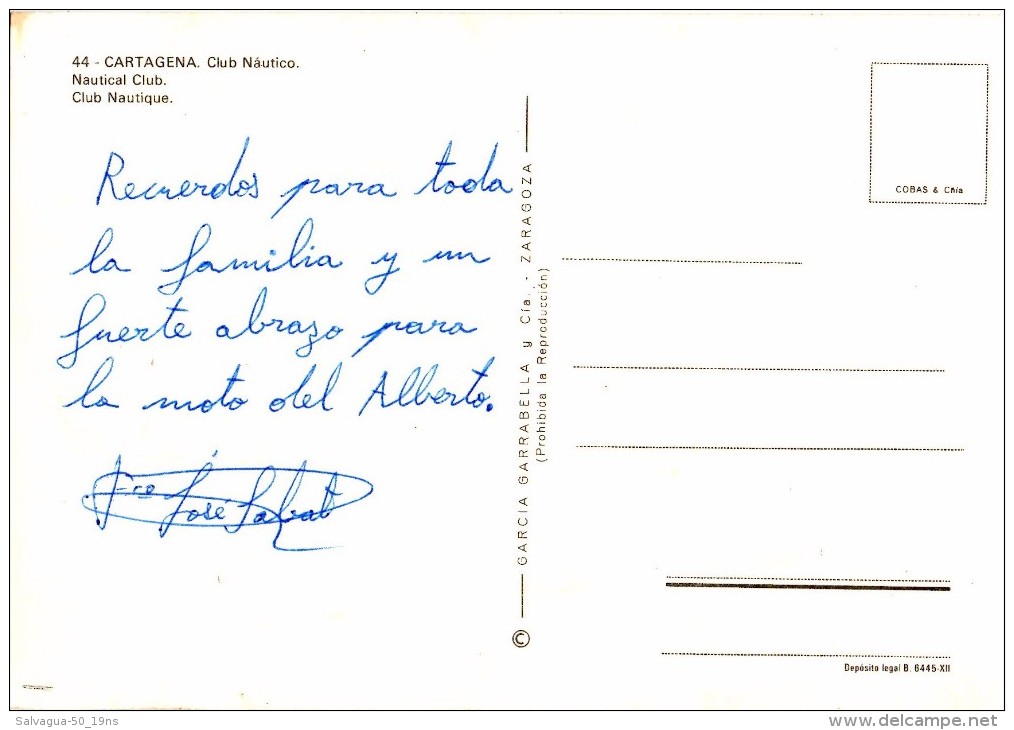 44 - CARTAGENA. Club Náutico.
Nautical Club.
Club Nautique.
Recuerdos para toda
la familia y un
fuerte abrazo para
la moto del Alberto.
Fco José
GARCIA GARRABELLA y Cía. - ZARAGOZA
(Prohibida la Reproducción)
©
COBAS & Cñía
Depósito legal B. 6445-XII
Salvagua-50_19ns
www.delcampe.net